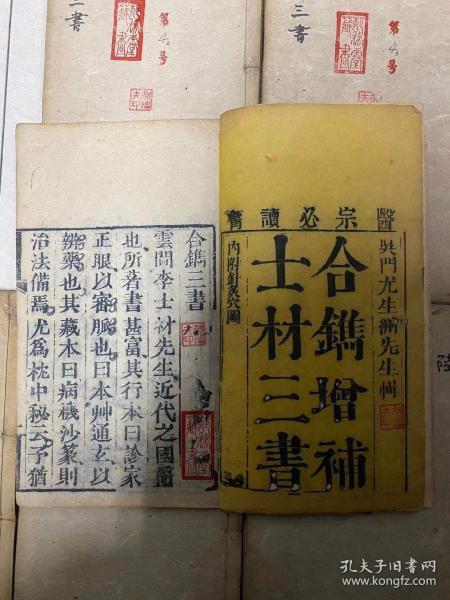 三書
第4号
三書
第4号
醫宗必讀
吳門尤生洲先生輯
合鐫增補
士材三書
內附針灸穴圖
合鐫三書
雲間李士材先生近代之國醫
也所著書甚富其行本曰診家
正眼以審脈也曰本艸通玄以
辨藥也其藏本曰病機沙篆則
治法備焉尤為枕中秘云予猶
孔夫子旧书网
www.kongfz.com